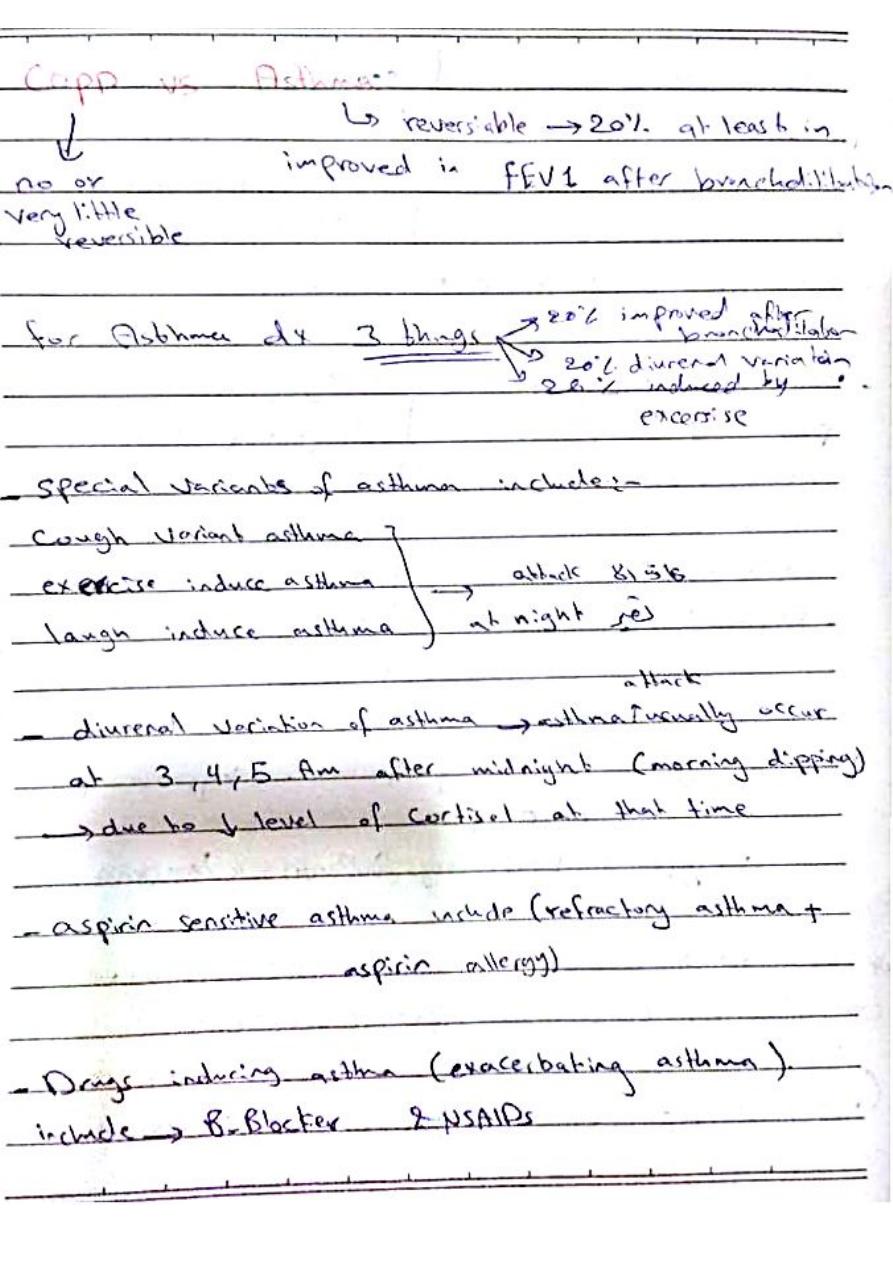 Copp vs Asthma:
↳ reversiable → 20% at least in
improved in FEV1 after bronchdilitution
no or
very little
reversible
for Asthma dx 3 things → 20% improved after
bronchdilation
20% diurenal variation
20% induced by
excersise
- special variants of asthma include:-
Cough variant asthma
exercise induce asthma
laugh induce asthma
→ attack
at night
attack
- diurenal variation of asthma → asthma ↑ usually occur
at 3,4,5 Am after midnight (morning dipping)
→ due to ↓ level of Cortisol at that time
- aspirin sensitive asthma include (refractory asthma +
aspirin allergy)
- Drugs inducing asthma (exacerbating asthma)
include → B-Blocker & NSAIDs